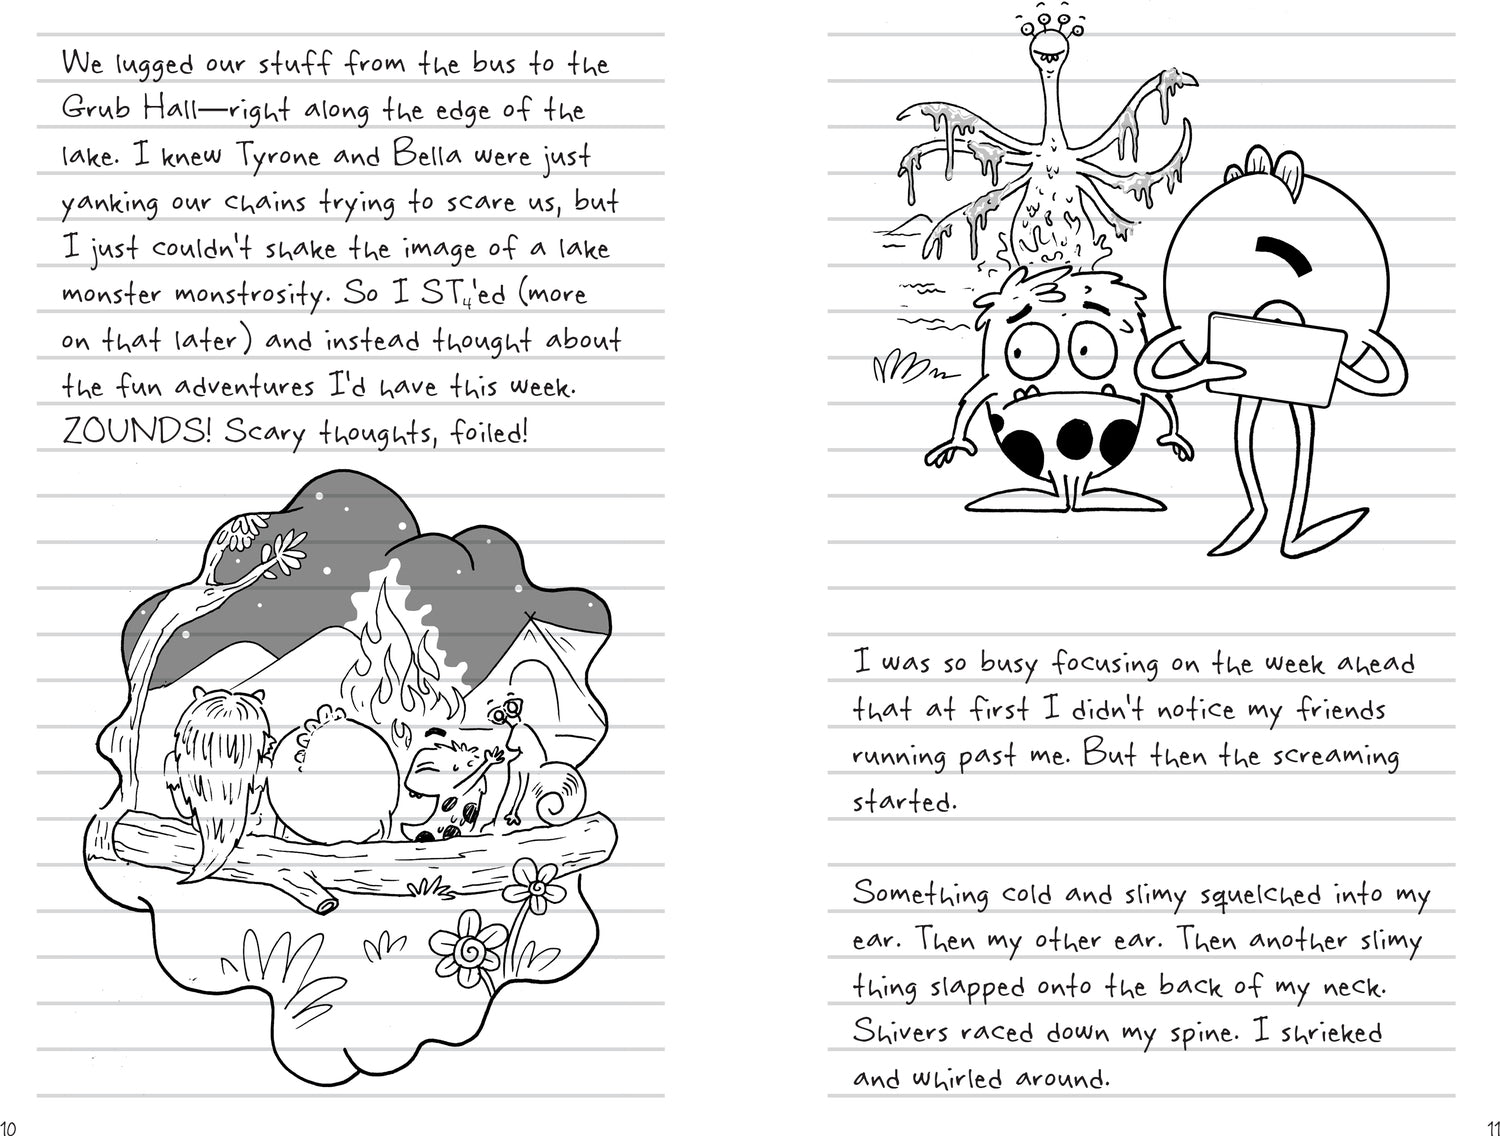 We lugged our stuff from the bus to the
Grub Hall—right along the edge of the
lake. I knew Tyrone and Bella were just
yanking our chains trying to scare us, but
I just couldn't shake the image of a lake
monster monstrosity. So I ST₄'ed (more
on that later) and instead thought about
the fun adventures I'd have this week.
ZOUNDS! Scary thoughts, foiled!
10
I was so busy focusing on the week ahead
that at first I didn't notice my friends
running past me. But then the screaming
started.
Something cold and slimy squelched into my
ear. Then my other ear. Then another slimy
thing slapped onto the back of my neck.
Shivers raced down my spine. I shrieked
and whirled around.
11